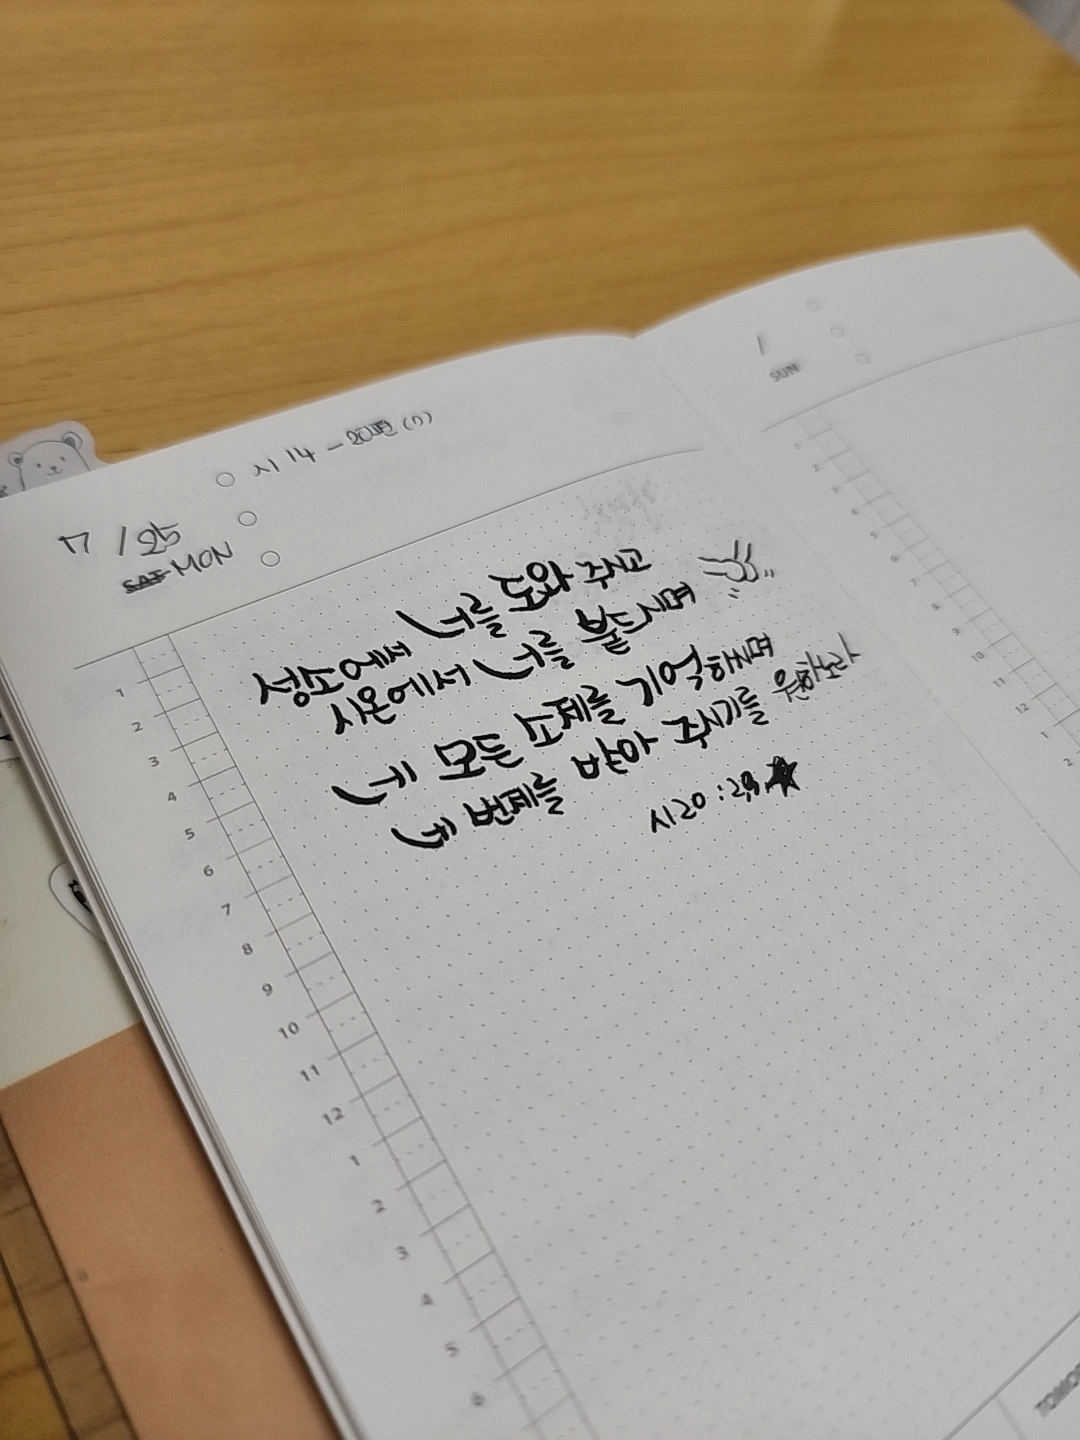 시 14 - 20편 (7)
7 / 25
SAT MON
성소에서 너를 도와 주시고
시온에서 너를 붙드시며
네 모든 소제를 기억하시며
네 번제를 받아 주시기를 원하노라
시20 : 2,3
1
2
3
4
5
6
7
8
9
10
11
12
1
2
3
4
5
6
1
SUN
8
9
10
11
12
1
2